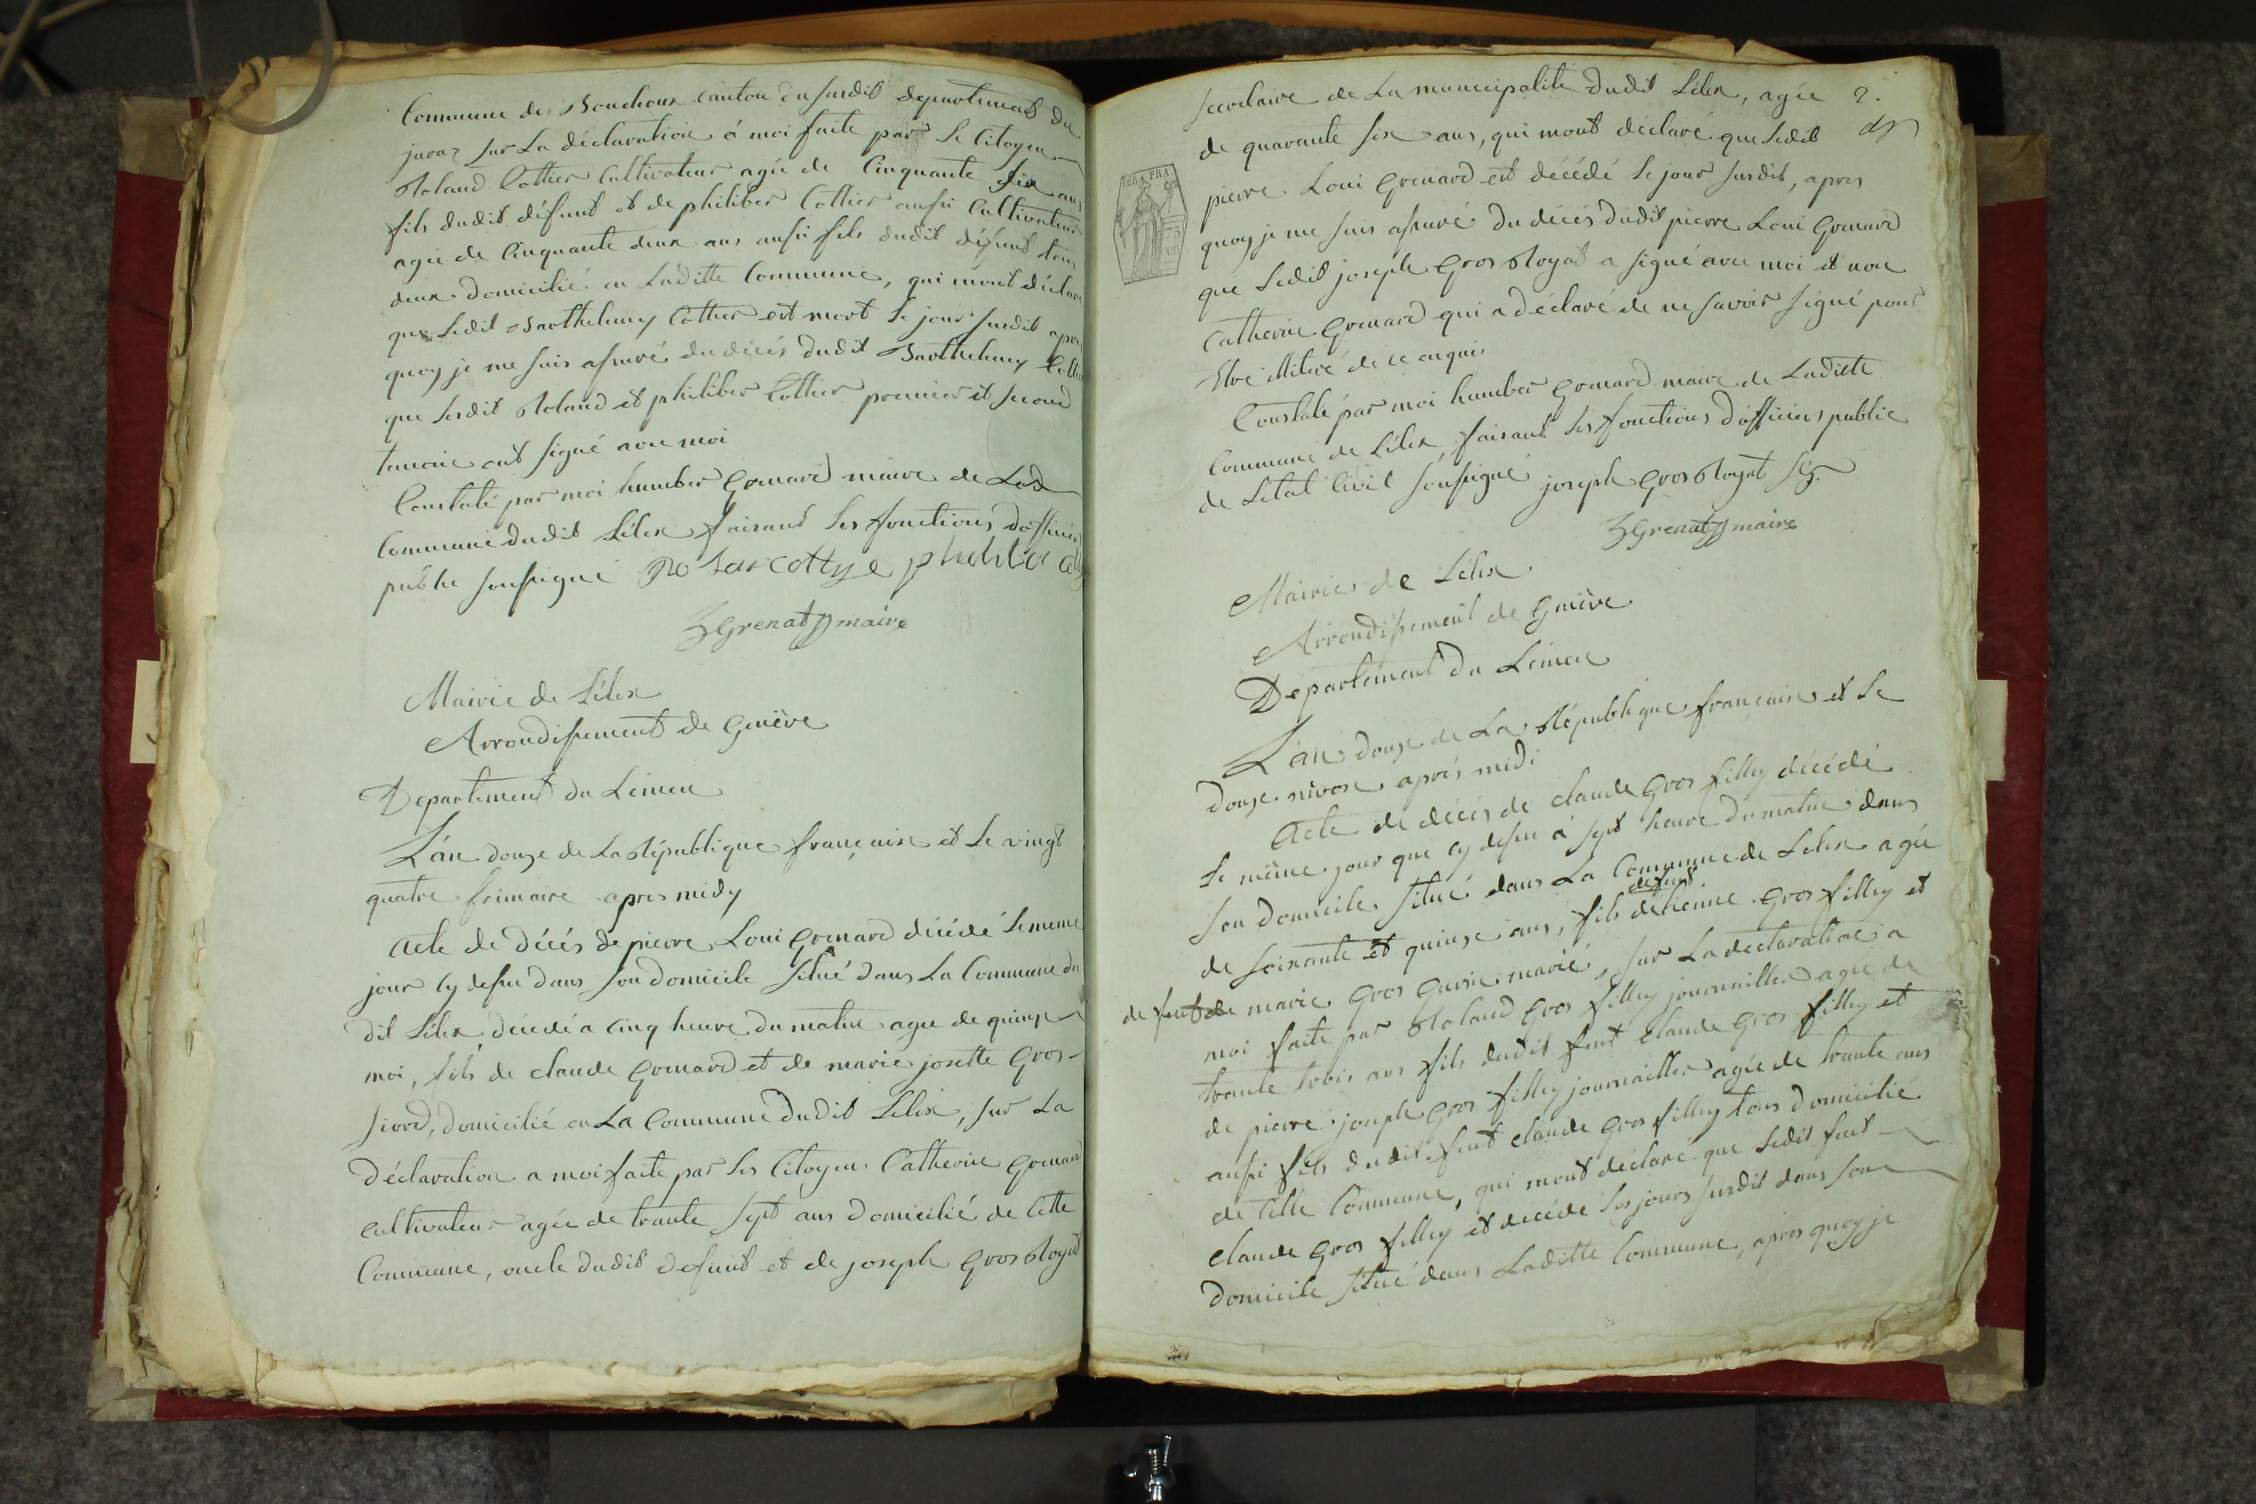 Commune des Bouchoux canton du susdit departement du
juraz sur La déclaration à moi faite par Le Citoyen
Roland Cottier Cultivateur agée de Cinquante six ans
fils dudit défunt et de philiber Cottier ausi Cultivateur
agée de Cinquante deux ans ausi fils dudit défunt tous
deux domicilié en Laditte Commune, qui mont déclaré
que Ledit Barthelemy Cottier est mort Le jour susdit apres
quoy je me suis assuré du décés dudit Barthelemy
que Lesdit Roland et philiber Cottier premier et second
temoin ont signé avec moi
Constaté par moi humber Grenard maire de Lad
Commune dudit Lélex faisant Les fonctions d'officier
public soussigné
Grenat maire
Mairie de Lélex
Arrondissement de Genève
Departement du Lémen
L'an douze de La République française et Le vingt
quatre frimaire apres midy
Acte de décés de pierre Loui Grenard décédé Le meme
jour cy desu dans son domicile situé dans La Commune du
dit Lélex, décédé a cinq heure du matin agee de quinze
moi, fils de claude Grenard et de marie josette Gros
domicilié en La Commune dudit Lélex, sur La
déclaration a moi faite par Les Citoyens Catherin Grenard
cultivateur agée de trante sept ans domicilié de Cette
Commune, oncle dudit defunt et de joseph Gros Royat
secretaire de La municipalité dudit Lélex, agée 2.
de quarante six ans, qui mont déclaré que Ledit
pierre Loui Grenard est décédé Le jour susdit, apres
quoy je me suis assuré du décés dudit pierre Loui Grenard
que Ledit joseph Gros Royat a signé avec moi et non
Catherin Grenard qui a déclaré de ne savoir signé pour
Etre illitéré de ce enquis
Constaté par moi humber Grenard maire de Laditte
Commune de Lélex, faisant Les fonctions d'officiers public
de Létat Civil soussigné joseph Gros Royat
Grenat maire
Mairie de Lélex
Arrondissement de Genève
Departement du Lémen
L'an douze de La République française et Le
douze nivose après midi
Acte de décés de claude Gros fillex décédé
Le même jour que cy desu à sept heure du matin dans
son domicile situé dans La Commune de Lelex agée
defunt
de soixante et quinze ans, fils détienne Gros fillex et
de marie Gros marié, sur La déclaration a
moi faite par Roland Gros fillex journailler agée de
trante trois ans fils dudit feut claude Gros fillex et
de pierre joseph Gros fillex journailler agée de trante ans
ausi fils dudit feut claude Gros fillex tous domicilié
de Cette Commune, qui mont déclaré que Ledit feut
claude Gros fillex est décédé Les jours susdit dans son
domicile situé dans Laditte Commune, apres quoy je